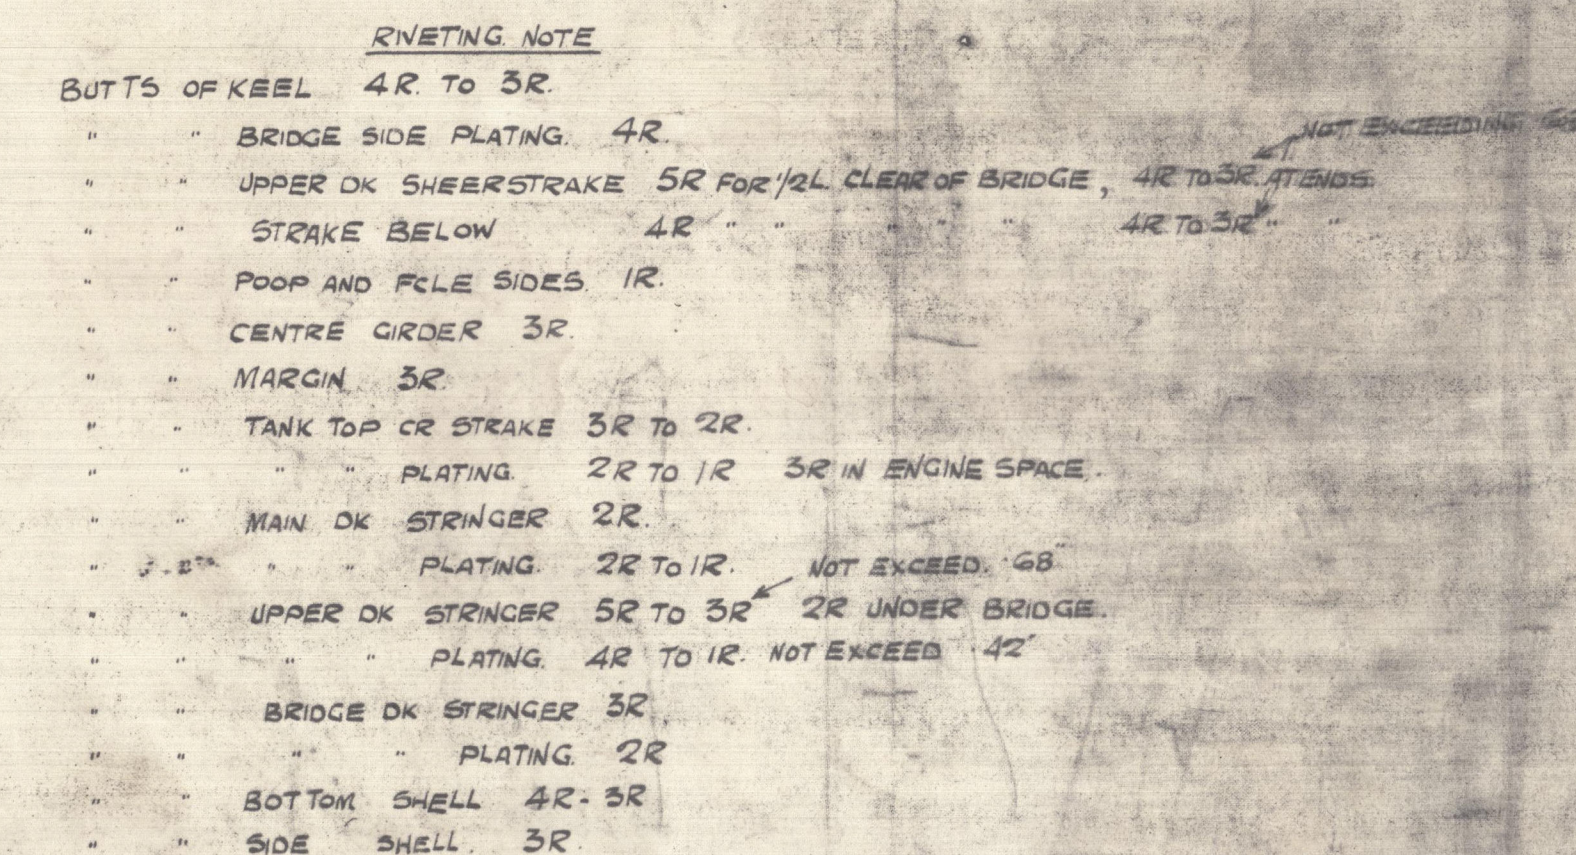 RIVETING NOTE
BUTTS OF KEEL 4R. TO 3R.
" " BRIDGE SIDE PLATING. 4R.
NOT EXCEEDING
" " UPPER DK SHEERSTRAKE 5R FOR 1/2L CLEAR OF BRIDGE, 4R TO 3R. AT ENDS.
" " STRAKE BELOW 4R " " " " " 4R TO 3R " "
" " POOP AND FCLE SIDES. 1R.
" " CENTRE GIRDER 3R.
" " MARGIN 3R.
" " TANK TOP CR STRAKE 3R TO 2R.
" " " " PLATING. 2R TO 1R 3R IN ENGINE SPACE.
" " MAIN DK STRINGER 2R.
" " " PLATING. 2R TO 1R. NOT EXCEED. .68"
" " UPPER DK STRINGER 5R TO 3R 2R UNDER BRIDGE.
" " " " PLATING. 4R TO 1R. NOT EXCEED .42"
" " BRIDGE DK STRINGER 3R.
" " " " PLATING. 2R
" " BOTTOM SHELL 4R - 3R
" " SIDE SHELL. 3R.